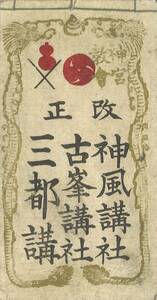 神宮
教會
改正
神風講社
古峯講社
三都講